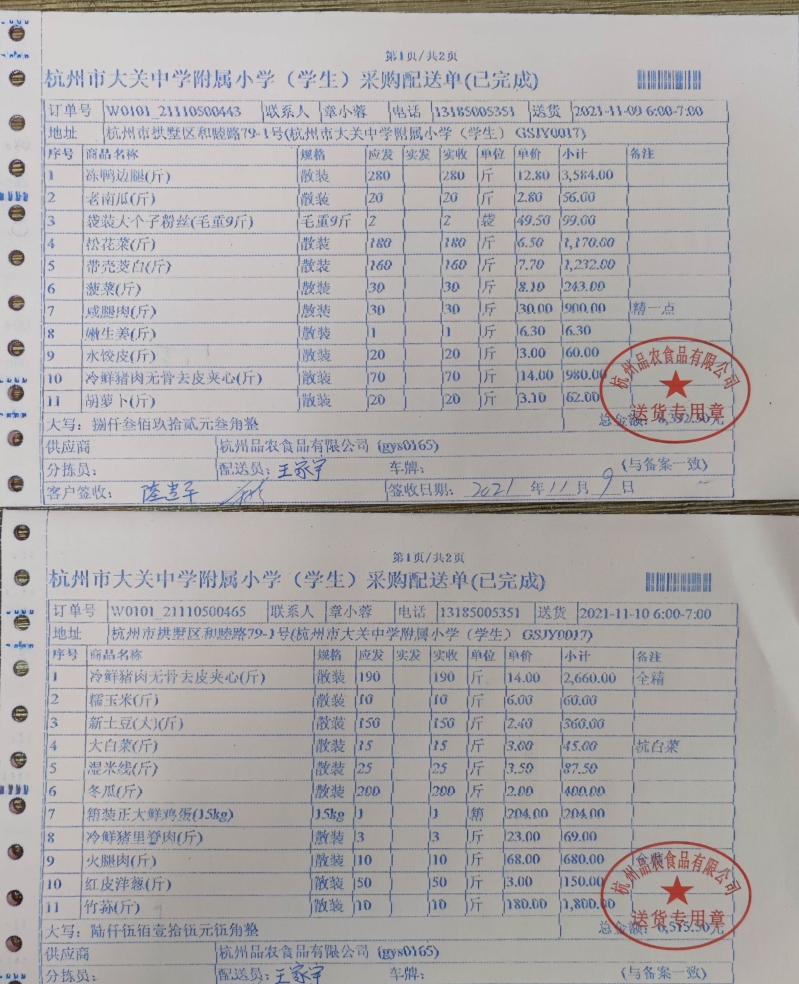 第1页/共2页
杭州市大关中学附属小学（学生）采购配送单(已完成)
订单号 W0101_21110500443 联系人 章小蓉 电话 13185005351 送货 2021-11-09 6:00-7:00
地址 杭州市拱墅区和睦路79-1号(杭州市大关中学附属小学（学生） GSJY0017)
序号 商品名称 规格 应发 实发 实收 单位 单价 小计 备注
1 冻鸭边腿(斤) 散装 280 280 斤 12.80 3,584.00
2 老南瓜(斤) 散装 20 20 斤 2.80 56.00
3 袋装大个子粉丝(毛重9斤) 毛重9斤 2 2 袋 49.50 99.00
4 松花菜(斤) 散装 180 180 斤 6.50 1,170.00
5 带壳茭白(斤) 散装 160 160 斤 7.70 1,232.00
6 菠菜(斤) 散装 30 30 斤 8.10 243.00
7 咸腿肉(斤) 散装 30 30 斤 30.00 900.00 精一点
8 嫩生姜(斤) 散装 1 1 斤 6.30 6.30
9 水饺皮(斤) 散装 20 20 斤 3.00 60.00
10 冷鲜猪肉无骨去皮夹心(斤) 散装 70 70 斤 14.00 980.00
11 胡萝卜(斤) 散装 20 20 斤 3.10 62.00
大写：捌仟叁佰玖拾贰元叁角整 总金额：8,392.30元
杭州品农食品有限公司
送货专用章
供应商 杭州品农食品有限公司 (gys0165)
分拣员： 配送员：王家宇 车牌： (与备案一致)
客户签收： 签收日期： 2021 年 11 月 9 日
第1页/共2页
杭州市大关中学附属小学（学生）采购配送单(已完成)
订单号 W0101_21110500465 联系人 章小蓉 电话 13185005351 送货 2021-11-10 6:00-7:00
地址 杭州市拱墅区和睦路79-1号(杭州市大关中学附属小学（学生） GSJY0017)
序号 商品名称 规格 应发 实发 实收 单位 单价 小计 备注
1 冷鲜猪肉无骨去皮夹心(斤) 散装 190 190 斤 14.00 2,660.00 全精
2 糯玉米(斤) 散装 10 10 斤 6.00 60.00
3 新土豆(大)(斤) 散装 150 150 斤 2.40 360.00
4 大白菜(斤) 散装 15 15 斤 3.00 45.00 杭白菜
5 湿米线(斤) 散装 25 25 斤 3.50 87.50
6 冬瓜(斤) 散装 200 200 斤 2.00 400.00
7 箱装正大鲜鸡蛋(15kg) 15kg 1 1 箱 204.00 204.00
8 冷鲜猪里脊肉(斤) 散装 3 3 斤 23.00 69.00
9 火腿肉(斤) 散装 10 10 斤 68.00 680.00
10 红皮洋葱(斤) 散装 50 50 斤 3.00 150.00
11 竹荪(斤) 散装 10 10 斤 180.00 1,800.00
大写：陆仟伍佰壹拾伍元伍角整 总金额：6,515.50元
杭州品农食品有限公司
送货专用章
供应商 杭州品农食品有限公司 (gys0165)
分拣员： 配送员：王家宇 车牌： (与备案一致)